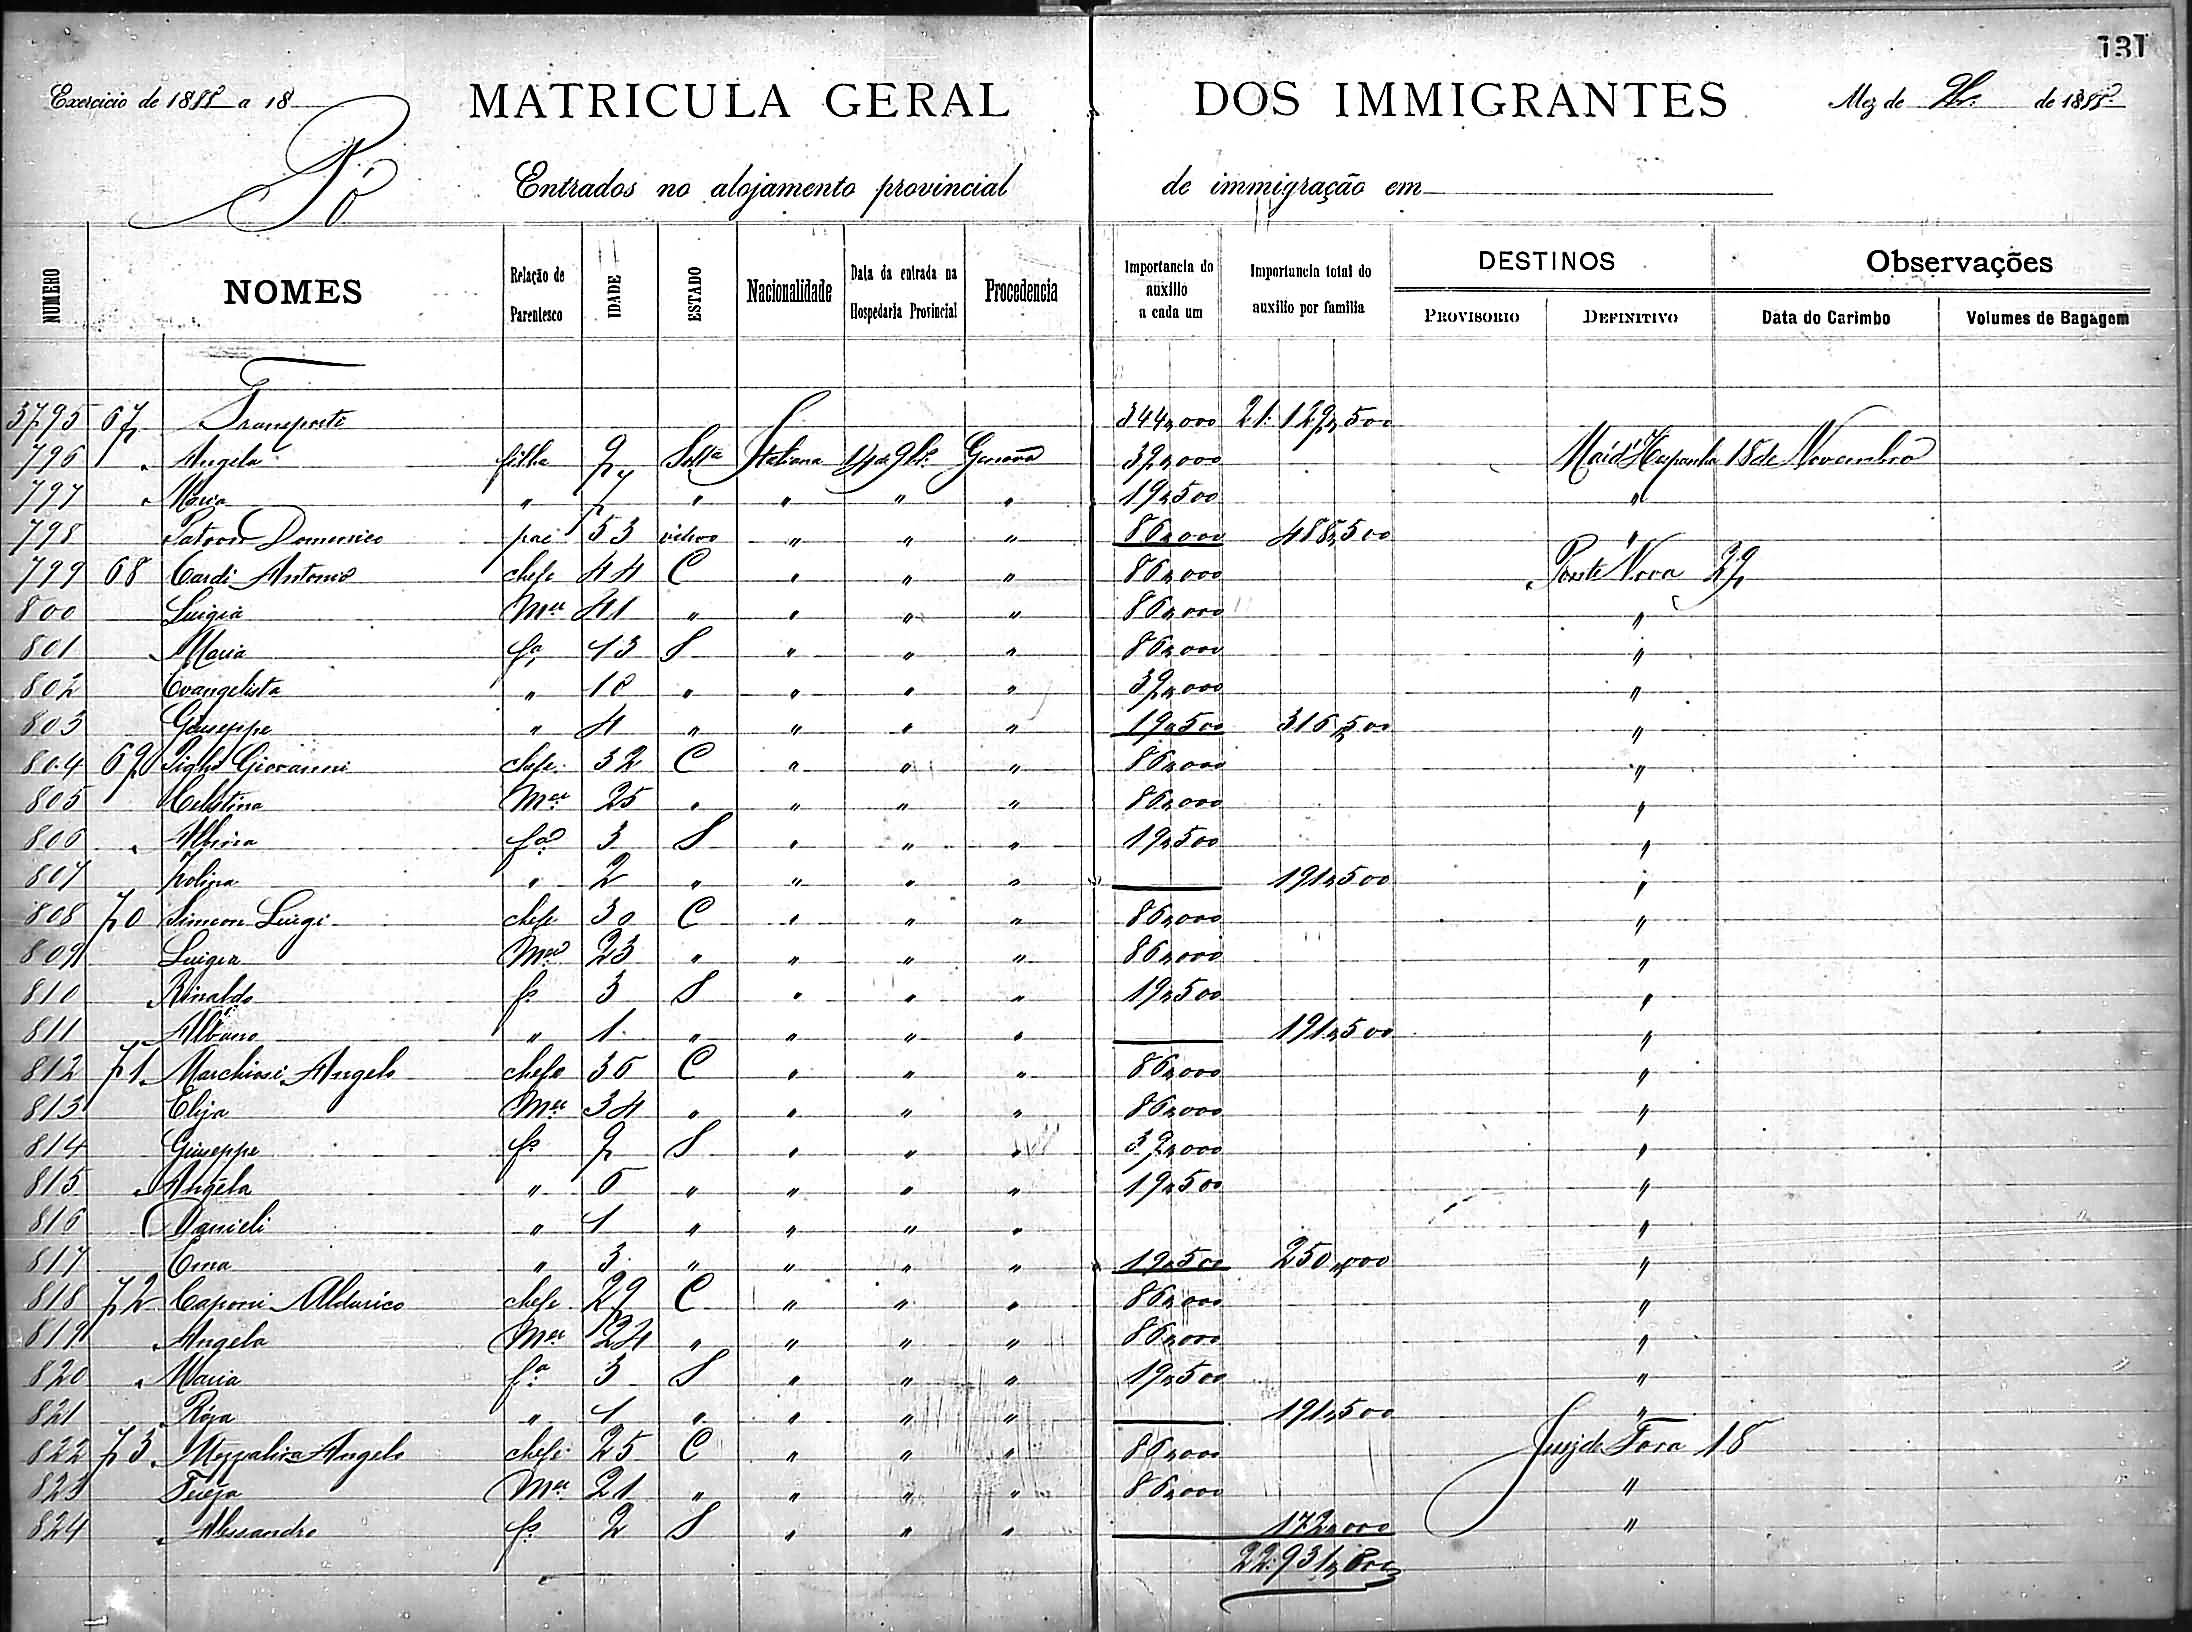 131
Exercicio de 1888 a 18
MATRICULA GERAL DOS IMMIGRANTES
Mez de 9br. de 1888
Pó
Entrados no alojamento provincial de immigração em
NUMERO NOMES Relação de Parentesco IDADE ESTADO Nacionalidade Data da entrada na Hospedaria Provincial Procedencia Importancia do auxilio a cada um Importancia total do auxilio por familia DESTINOS PROVISORIO DEFINITIVO Observações Data do Carimbo Volumes de Bagagem
3795 67 Transporte 344,000 21:129,500
796 " Angela filha 9 Solta Italiana 14 de 9br. Genova 39,000 Mar d'Hespanha 18 de Novembro
797 " Maria " 7 " " " " 19,500 "
798 Domenico pai 53 viuvo " " " 86,000 488,500 "
799 68 Cardi Antonio chefe 44 C " " " 86,000 Ponte Nova 29
800 Luigia Mer 41 " " " " 86,000 "
801 Maria fa 13 S " " " 86,000 "
802 Evangelista " 10 " " " " 39,000 "
803 Giuseppe " 4 " " " " 19,500 316,500 "
804 69 Giovanni chefe 32 C " " " 86,000 "
805 Celestina Mer 25 " " " " 86,000 "
806 " Albina fa 3 S " " " 19,500 "
807 2 " " " " 191,500 "
808 70 Simeon Luigi chefe 30 C " " " 86,000 "
809 Luigia Mer 23 " " " " 86,000 "
810 Rinaldo fo 3 S " " " 19,500 "
811 Albano " 1 " " " " 191,500 "
812 71 Marchiori Angelo chefe 36 C " " " 86,000 "
813 Eliza Mer 34 " " " " 86,000 "
814 Giuseppe fo 9 S " " " 39,000 "
815 " Angela " 6 " " " " 19,500 "
816 Danieli " 1 " " " " "
817 Ema " 3 " " " " 19,500 250,000 "
818 72 Caponi Alderico chefe 29 C " " " 86,000 "
819 Angela Mer 24 " " " " 86,000 "
820 " Maria fa 3 S " " " 19,500 "
821 Roza " 1 " " " " 191,500 "
822 73 Mezzalira Angelo chefe 25 C " " " 86,000 Juiz de Fora 18
823 Tereza Mer 21 " " " " 86,000 "
824 Alessandro fo 2 S " " " 172,000 "
22:931,000